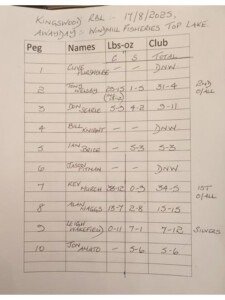 KINGSWOOD RBL - 17/8/2025.
AWAYDAY - WINDMILL FISHERIES TOP LAKE.
Peg Names Lbs-oz Club
C S TOTAL
1 CLIVE — — DNW
2 TONY 1-5 31-4 2ND O/ALL
3 DON SEARLE 5-5 4-2 9-11
4 BILL KNIGHT — — DNW
5 IAN BRICE — 5-3 5-3
6 JASON PITMAN — — DNW
7 KEV MURCH 33-12 0-9 34-5 1ST O/ALL
8 ALAN JAGGS 13-7 2-8 15-15
9 LEIGH WAKEFIELD 0-11 7-1 7-12 SILVERS
10 JON AMATO — 5-6 5-6